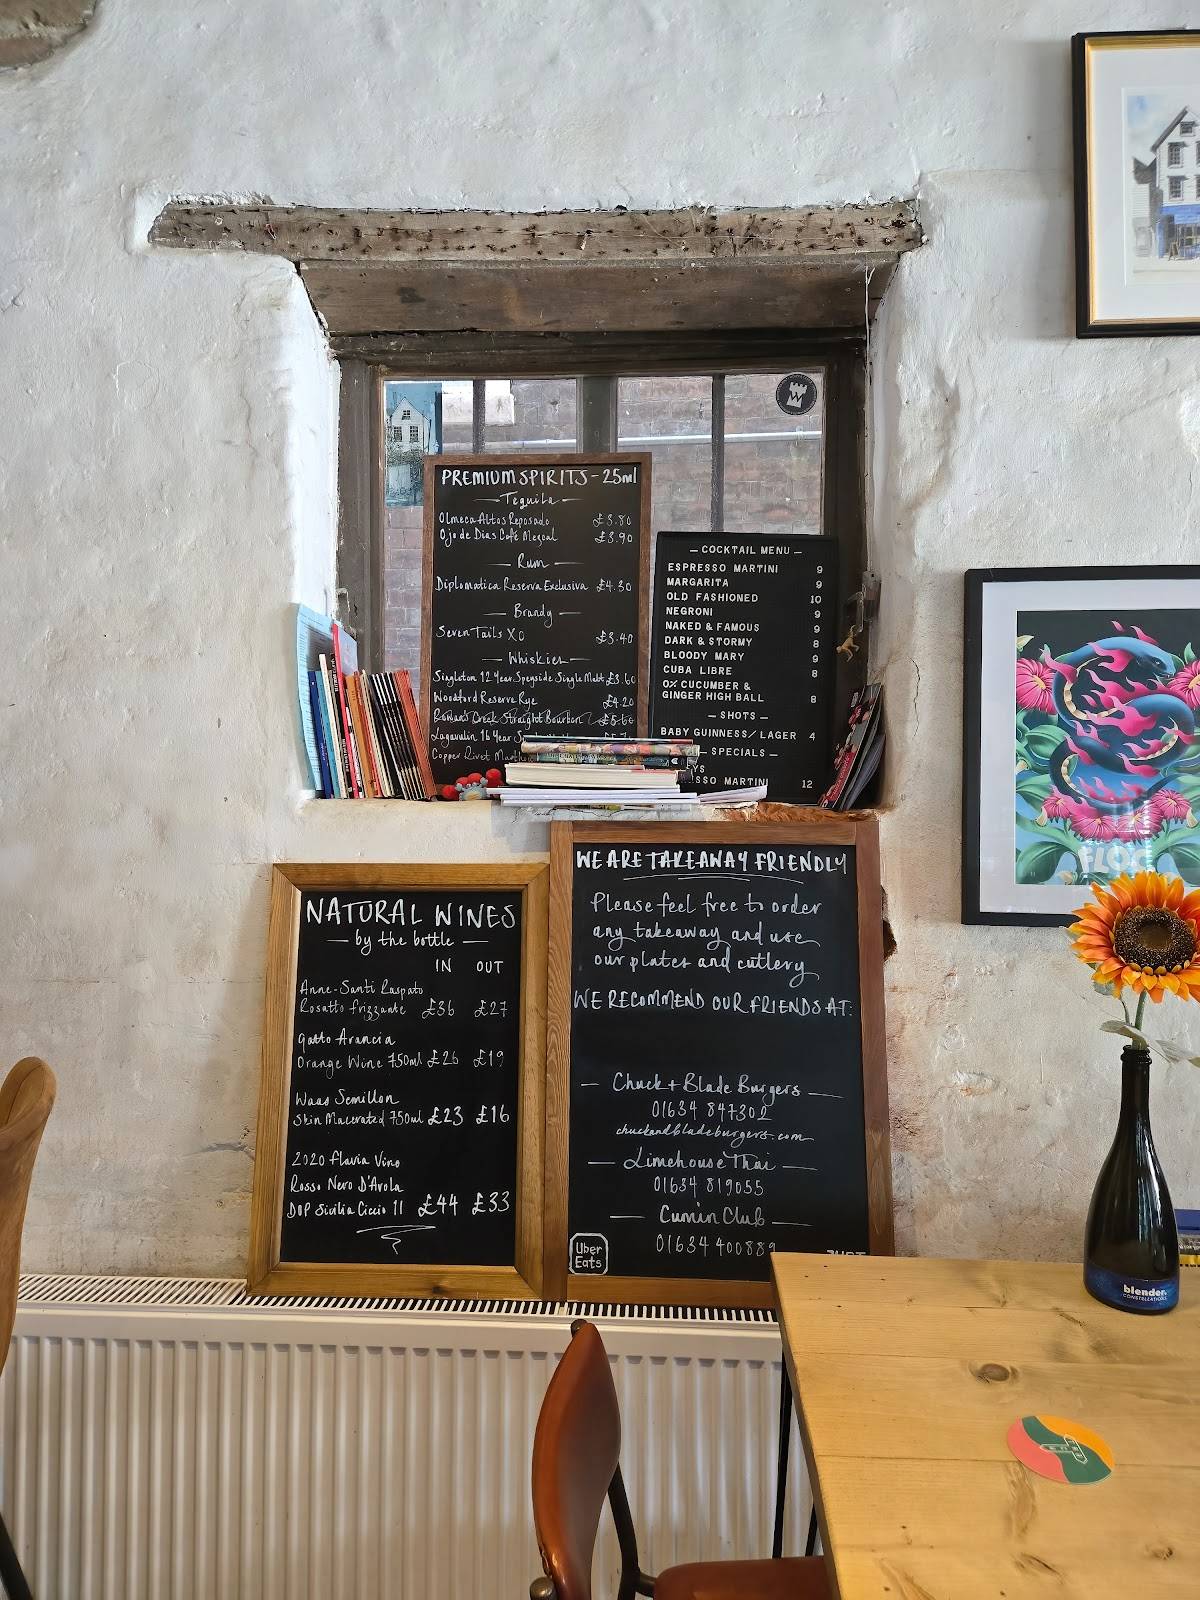 PREMIUM SPIRITS - 25ml
— Tequila —
Olmeca Altos Reposado £3.80
Ojo de Dias Café Mezcal £3.90
— Rum —
Diplomatica Reserva Exclusiva £4.30
— Brandy —
Seven Tails XO £3.40
— Whiskies —
Singleton 12 Year Speyside Single Malt £3.60
Woodford Reserve Rye £4.20
Straight Bourbon £5.60
Lagavulin 16 Year
Copper Rivet
— COCKTAIL MENU —
ESPRESSO MARTINI 9
MARGARITA 9
OLD FASHIONED 10
NEGRONI 9
NAKED & FAMOUS 9
DARK & STORMY 8
BLOODY MARY 9
CUBA LIBRE 8
0% CUCUMBER &
GINGER HIGH BALL 8
— SHOTS —
BABY GUINNESS/ LAGER 4
SPECIALS —
MARTINI 12
NATURAL WINES
— by the bottle —
IN OUT
Anne-Santi Raspato
Rosatto frizzante £36 £27
gatto Arancia
Orange Wine 750ml £26 £19
Waas Semillon
Skin Macerated 750ml £23 £16
2020 Flavia Vino
Rosso Nero D'Avola
DOP Sicilia Ciccio 11 £44 £33
WE ARE TAKEAWAY FRIENDLY
Please feel free to order
any takeaway and use
our plates and cutlery
WE RECOMMEND OUR FRIENDS AT:
— Chuck + Blade Burgers —
01634 847302
chuckandbladeburgers.com
— Limehouse Thai —
01634 819055
— Cumin Club —
01634 400889
Uber
Eats
JUST
FLOC
blender.
CONSTELLATIONS